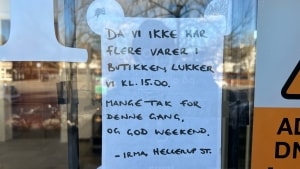 DA VI IKKE HAR
FLERE VARER I
BUTIKKEN, LUKKER
VI KL. 15.00.
MANGE TAK FOR
DENNE GANG,
OG GOD WEEKEND.
- IRMA, HELLERUP ST.
AD
DN